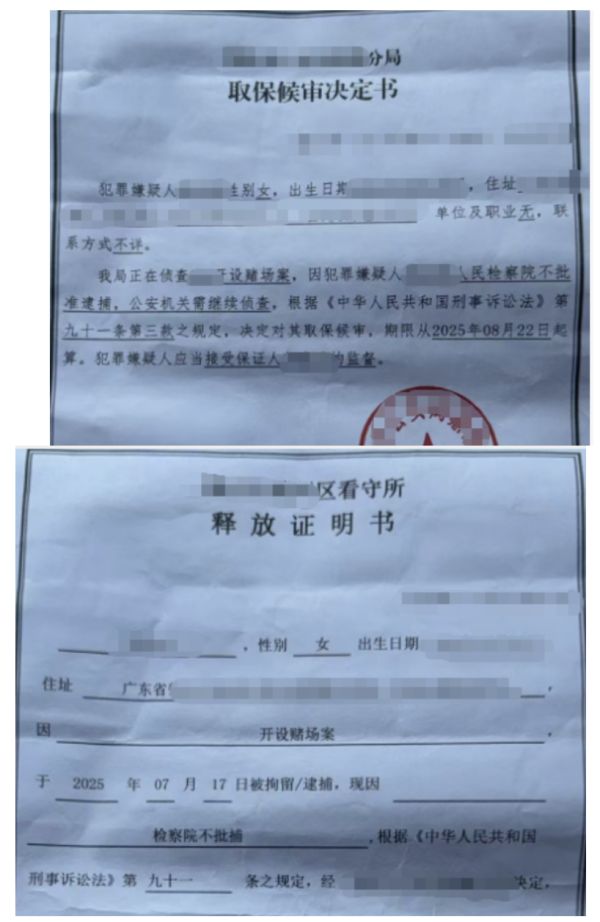 分局
取保候审决定书
犯罪嫌疑人 性别女，出生日期 ，住址
单位及职业无，联
系方式不详。
我局正在侦查 开设赌场案，因犯罪嫌疑人 人民检察院不批
准逮捕，公安机关需继续侦查，根据《中华人民共和国刑事诉讼法》第
九十一条第三款之规定，决定对其取保候审，期限从2025年08月22日起
算。犯罪嫌疑人应当接受保证人 的监督。
区看守所
释放证明书
，性别 女 出生日期
住址 广东省 ，
因 开设赌场案 ，
于 2025 年 07 月 17 日被拘留/逮捕，现因
检察院不批捕 ，根据《中华人民共和国
刑事诉讼法》第 九十一 条之规定，经 决定，